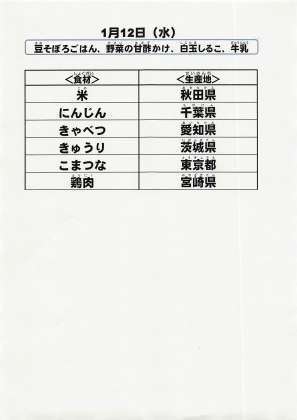 1月12日（水）
豆そぼろごはん、野菜の甘酢かけ、白玉しるこ、牛乳
＜食材＞ ＜生産地＞
米 秋田県
にんじん 千葉県
きゃべつ 愛知県
きゅうり 茨城県
こまつな 東京都
鶏肉 宮崎県